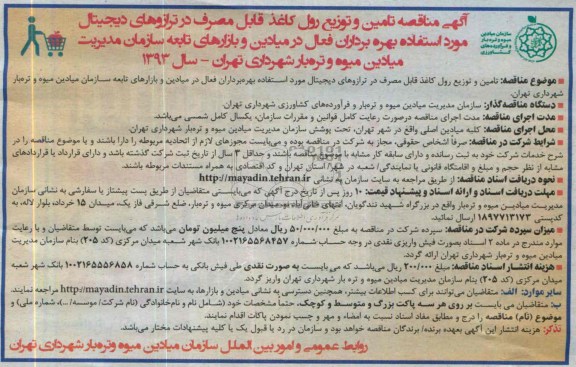 آگهی مناقصه تامین و توزیع رول کاغذ قابل مصرف در ترازوهای دیجیتال
مورد استفاده بهره برداران فعال در میادین و بازارهای تابعه سازمان مدیریت
میادین میوه و تره‌بار شهرداری تهران - سال ۱۳۹۳
موضوع مناقصه: تامین و توزیع رول کاغذ قابل مصرف در ترازوهای دیجیتال مورد استفاده بهره‌برداران فعال در میادین و بازارهای تابعه سازمان میادین میوه و تره‌بار
شهرداری تهران.
دستگاه مناقصه‌گذار: سازمان مدیریت میادین میوه و تره‌بار و فرآورده‌های کشاورزی شهرداری تهران.
مدت اجرای مناقصه: مدت اجرای مناقصه درصورت رعایت کامل قوانین و مقررات سازمان، یکسال کامل شمسی می‌باشد.
محل اجرای مناقصه: کلیه میادین اصلی واقع در شهر تهران، تحت پوشش سازمان مدیریت میادین میوه و تره‌بار شهرداری تهران.
شرایط شرکت در مناقصه: صرفاً اشخاص حقوقی، مجاز به شرکت در مناقصه بوده و می‌بایست مجوزهای لازم از اتحادیه مربوطه را دارا باشند و یا موضوع مناقصه را در
شرح خدمات شرکت خود به ثبت رسانده و دارای سابقه کار مشابه با موضوع مناقصه باشند و حداقل ۳ سال از تاریخ ثبت شرکت گذشته باشد و دارای قرارداد یا قراردادهای
مشابه از نظر حجم و مبلغ و اقامتگاه قانونی یا نمایندگی/ شعبه در شهر/ استان تهران و کد اقتصادی به همراه مستندات مربوطه باشند.
نحوه دریافت اسناد مناقصه: از طریق مراجعه به سایت سازمان به نشانی http://mayadin.tehran.ir
مهلت دریافت اسناد و ارائه اسناد و پیشنهاد قیمت: ۱۰ روز پس از تاریخ درج آگهی که می‌بایستی متقاضیان از طریق پست پیشتاز با سفارشی به نشانی سازمان
مدیریت میادین میوه و تره‌بار واقع در بزرگراه شهید تندگویان، انتهای خانی‌آبادنو، میدان مرکزی میوه و تره‌بار، ضلع شرقی فاز یک، میدان ۱۵ خرداد، بلوار لاله، به
کدپستی ۱۸۹۷۷۱۳۱۷۳ ارسال نمائید.
میزان سپرده شرکت در مناقصه: سپرده شرکت در مناقصه به مبلغ ۵۰/۰۰۰/۰۰۰ ریال معادل پنج میلیون تومان می‌باشد که می‌بایست توسط متقاضیان و با رعایت
موارد مندرج در ماده ۲ اسناد بصورت فیش واریزی نقدی در وجه حساب شماره ۱۰۰۲۱۶۵۵۶۸۴۵۷ بانک شهر شعبه میدان مرکزی (کد ۲۰۵) بنام سازمان مدیریت
میادین میوه و تره‌بار شهرداری تهران ارائه گردد.
هزینه انتشار اسناد مناقصه: مبلغ ۲۰۰/۰۰۰ ریال می‌باشد که می بایست به صورت نقدی طی فیش بانکی به حساب شماره ۱۰۰۲۱۶۵۵۵۶۸۵۸ بانک شهر شعبه
میدان مرکزی (کد ۲۰۵) بنام سازمان مدیریت میادین میوه و تره بار شهرداری تهران واریز گردد.
سایر موارد: الف: متقاضیان می‌توانند برای کسب اطلاعات بیشتر، همچنین دسترسی به نشانی میادین و بازارها، به سایت http://mayadin.tehran.ir مراجعه نمایند.
ب: متقاضیان می بایست بر روی هر سه پاکت بزرگ و متوسط و کوچک، حتماً مشخصات خود (شامل نام و نام‌خانوادگی (نام شرکت/ موسسه/...)، شماره ملی) و
موضوع (نام) مناقصه را درج و مطابق مفاد اسناد نسبت به امضاء و مهر و چسب نمودن پاکات اقدام نمایند.
تذکر: هزینه انتشار این آگهی بعهده برنده/ برندگان مناقصه خواهد بود و سازمان در رد یا قبول یک یا کلیه پیشنهادات مختار می‌باشد.
روابط عمومی و امور بین الملل سازمان میادین میوه وتره‌بار شهرداری تهران